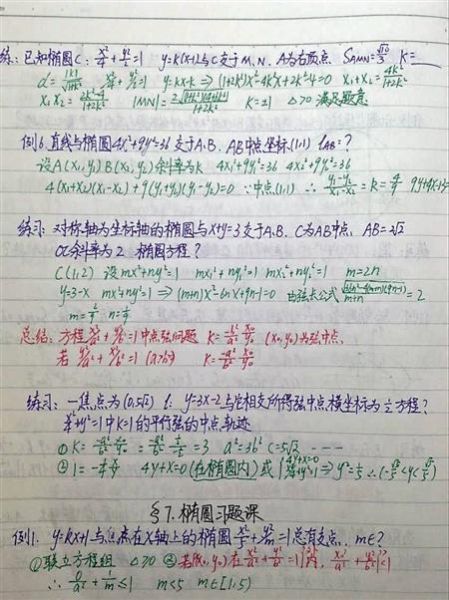 练:已知椭圆C: x²/4+y²/2=1 y=k(x-1)与C交于M.N. A为右顶点 S△AMN=√10/3 k=__
d=|k|/√(1+k²) x²/4+y²/2=1 y=kx-k ⇒(1+2k²)x²-4k²x+2k²-4=0 x₁+x₂=4k²/(1+2k²)
x₁x₂=(2k²-4)/(1+2k²) |MN|= k=±1 △>0 满足题意
例6.直线与椭圆4x²+9y²=36交于A.B. AB中点坐标(1,1) lAB=?
设A(x₁,y₁) B(x₂,y₂) 斜率为k 4x₁²+9y₁²=36 4x₂²+9y₂²=36
4(x₁+x₂)(x₁-x₂)+9(y₁+y₂)(y₁-y₂)=0 ∵中点(1,1) ∴ (y₁-y₂)/(x₁-x₂)=k=
练习: 对称轴为坐标轴的椭圆与x+y=3交于A.B. C为AB中点, AB=2√2
OC斜率为2 椭圆方程?
C(1,2) 设mx²+ny²=1 mx₁²+ny₁²=1 mx₂²+ny₂²=1 m=2n
y=3-x mx²+ny²=1 ⇒(m+n)x²-6nx+9n-1=0 由弦长公式 =2
总结: 方程x²/a²+y²/b²=1中点弦问题 k=-b²/a² x₀/y₀ (x₀,y₀)为弦中点,
若 y²/a²+x²/b²=1 (a>b>0) k=-a²/b² x₀/y₀
练习: 一焦点为(0,5√2) l: y=3x-2与它相交所得弦中点横坐标为½方程?
x²/4+y²=1中k=1的平行弦的中点轨迹
①k= =3 a²=3b² c=5√2 ----
② 4y+x=0(在椭圆内)或
§7.椭圆习题课
例1. y=kx+1与焦点在x轴上的椭圆x²/5+y²/m=1总有点. m∈?
①联立方程组 △≥0 ②若(x₀,y₀)在x²/a²+y²/b²=1内, x₀²/a²+y₀²/b²<1
∴ 0/a²+1/m≤1 m<5 m∈[1,5)